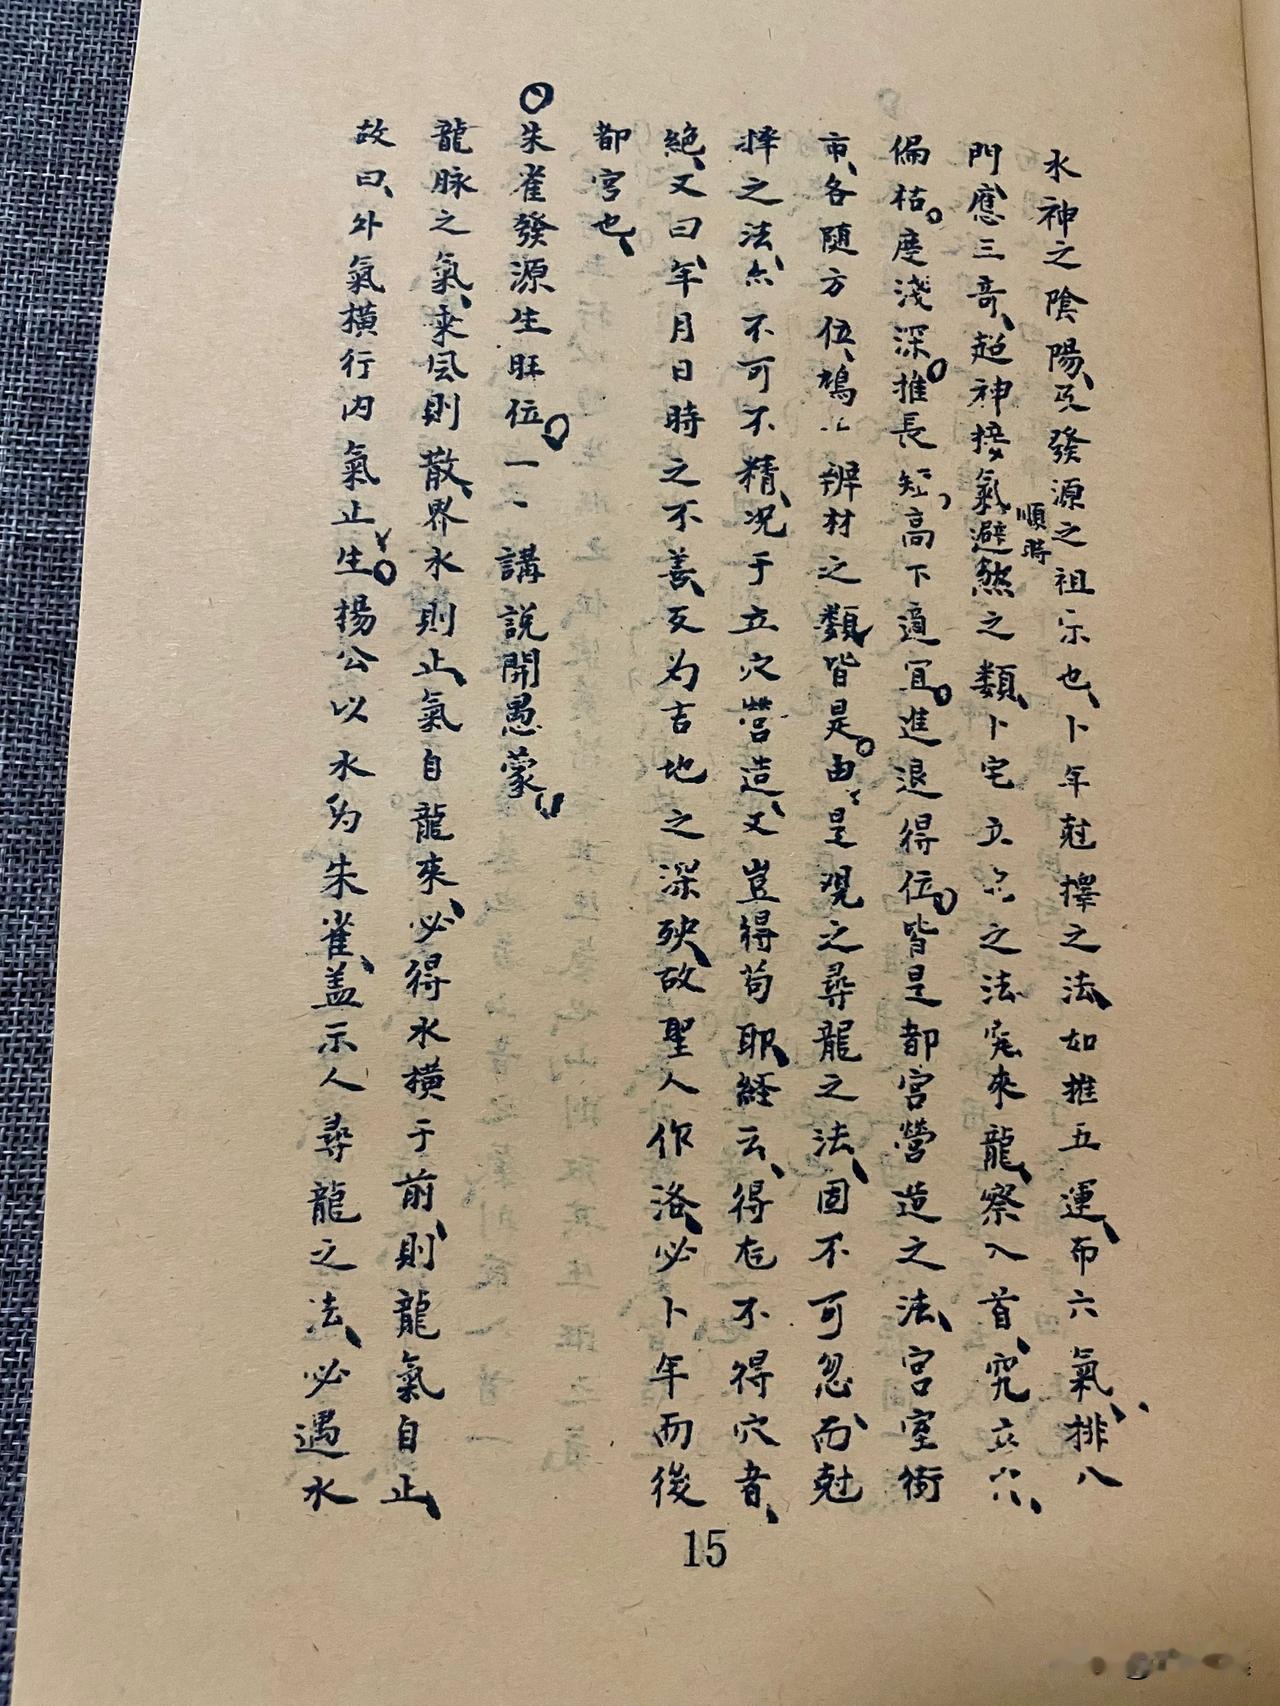 水神之陰陽、及發源之祖宗也、卜年尅擇之法、如推五運、布六氣、排八
門、應三奇、超神接氣、避煞順時之類、卜宅立穴之法、究來龍、察入首、究立穴、
偏枯。度淺深。推長短、高下適宜。進退得位。皆是都宮營造之法、宮室街
市、各隨方位、鳩工辨材之類皆是。由是觀之尋龍之法、固不可忽、而尅
擇之法、亦不可不精、况于立穴營造、又豈得苟耶、経云、得龙不得穴者、
絶、又曰、年月日時之不善、反为吉地之深殃、故聖人作洛、必卜年而後
都宮也、
朱雀發源生旺位。一一講說開愚蒙、
龍脉之氣、乘风則散、界水則止、氣自龍來、必得水横于前、則龍氣自止、
故曰、外氣横行内氣止生。楊公以水为朱雀、盖示人尋龍之法、必遇水
15